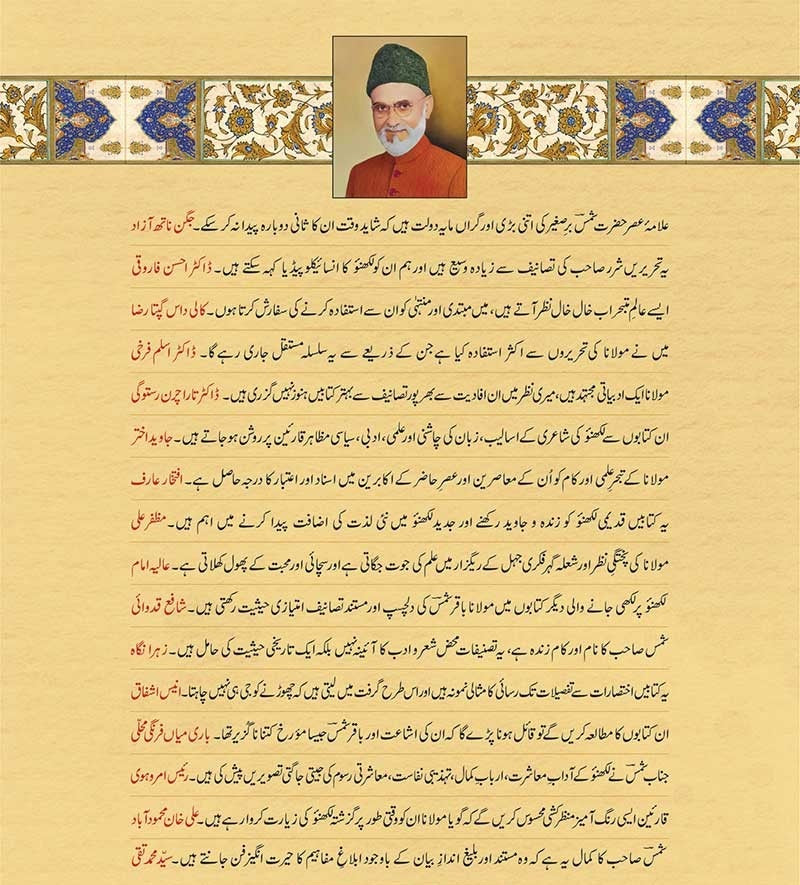 علامۂ عصر حضرت شمسؔ برِصغیر کی اتنی بڑی اور گراں مایہ دولت ہیں کہ شاید وقت ان کا ثانی دوبارہ پیدا نہ کر سکے۔ جگن ناتھ آزاد
یہ تحریریں شررؔ صاحب کی تصانیف سے زیادہ وسیع ہیں اور ہم ان کو لکھنؤ کا انسائیکلوپیڈیا کہہ سکتے ہیں۔ ڈاکٹر احسن فاروقی
ایسے عالمِ متبحر اب خال خال نظر آتے ہیں، میں مبتدی اور منتہیٰ کو ان سے استفادہ کرنے کی سفارش کرتا ہوں۔ کالی داس گپتا رضا
میں نے مولانا کی تحریروں سے اکثر استفادہ کیا ہے جن کے ذریعے سے یہ سلسلہ مستقل جاری رہے گا۔ ڈاکٹر اسلم فرخی
مولانا ایک ادبیاتی مجتہد ہیں، میری نظر میں ان افادیت سے بھرپور تصانیف سے بہتر کتابیں ہنوز نہیں گزری ہیں۔ ڈاکٹر تارا چرن رستوگی
ان کتابوں سے لکھنؤ کی شاعری کے اسالیب، زبان کی چاشنی اور علمی، ادبی، سیاسی مظاہر قارئین پر روشن ہو جاتے ہیں۔ جاوید اختر
مولانا کے تبحرِ علمی اور کام کو اُن کے معاصرین اور عصرِ حاضر کے اکابرین میں اسناد اور اعتبار کا درجہ حاصل ہے۔ افتخار عارف
یہ کتابیں قدیمی لکھنؤ کو زندہ و جاوید رکھنے اور جدید لکھنؤ میں نئی لذت کی اضافت پیدا کرنے میں اہم ہیں۔ مظفر علی
مولانا کی پختگیِ نظر اور شعلہ گہر فکری جہل کے ریگزار میں علم کی جوت جگاتی ہے اور سچائی اور محبت کے پھول کھلاتی ہے۔ عالیہ امام
لکھنؤ پر لکھی جانے والی دیگر کتابوں میں مولانا باقر شمسؔ کی دلچسپ اور مستند تصانیف امتیازی حیثیت رکھتی ہیں۔ شافع قدوائی
شمسؔ صاحب کا نام اور کام زندہ ہے، یہ تصنیفات محض شعر و ادب کا آئینہ نہیں بلکہ ایک تاریخی حیثیت کی حامل ہیں۔ زہرا نگاہ
یہ کتابیں اختصارات سے تفصیلات تک رسائی کا مثالی نمونہ ہیں اور اس طرح گرفت میں لیتی ہیں کہ چھوڑنے کو جی ہی نہیں چاہتا۔ انیس اشفاق
ان کتابوں کا مطالعہ کریں گے تو قائل ہونا پڑے گا کہ ان کی اشاعت اور باقر شمسؔ جیسا مؤرخ کتنا ناگزیر تھا۔ باری میاں فرنگی محلّی
جناب شمسؔ نے لکھنؤ کے آدابِ معاشرت، اربابِ کمال، تہذیبی نفاست، معاشرتی رسوم کی جیتی جاگتی تصویریں پیش کی ہیں۔ رئیس امروہوی
قارئین ایسی رنگ آمیز منظر کشی محسوس کریں گے کہ گویا مولانا ان کو وقتی طور پر گزشتہ لکھنؤ کی زیارت کروا رہے ہیں۔ علی خان محمودآباد
شمسؔ صاحب کا کمال یہ ہے کہ وہ مستند اور بلیغ اندازِ بیان کے باوجود ابلاغِ مفاہیم کا حیرت انگیز فن جانتے ہیں۔ سیّد محمد تقی